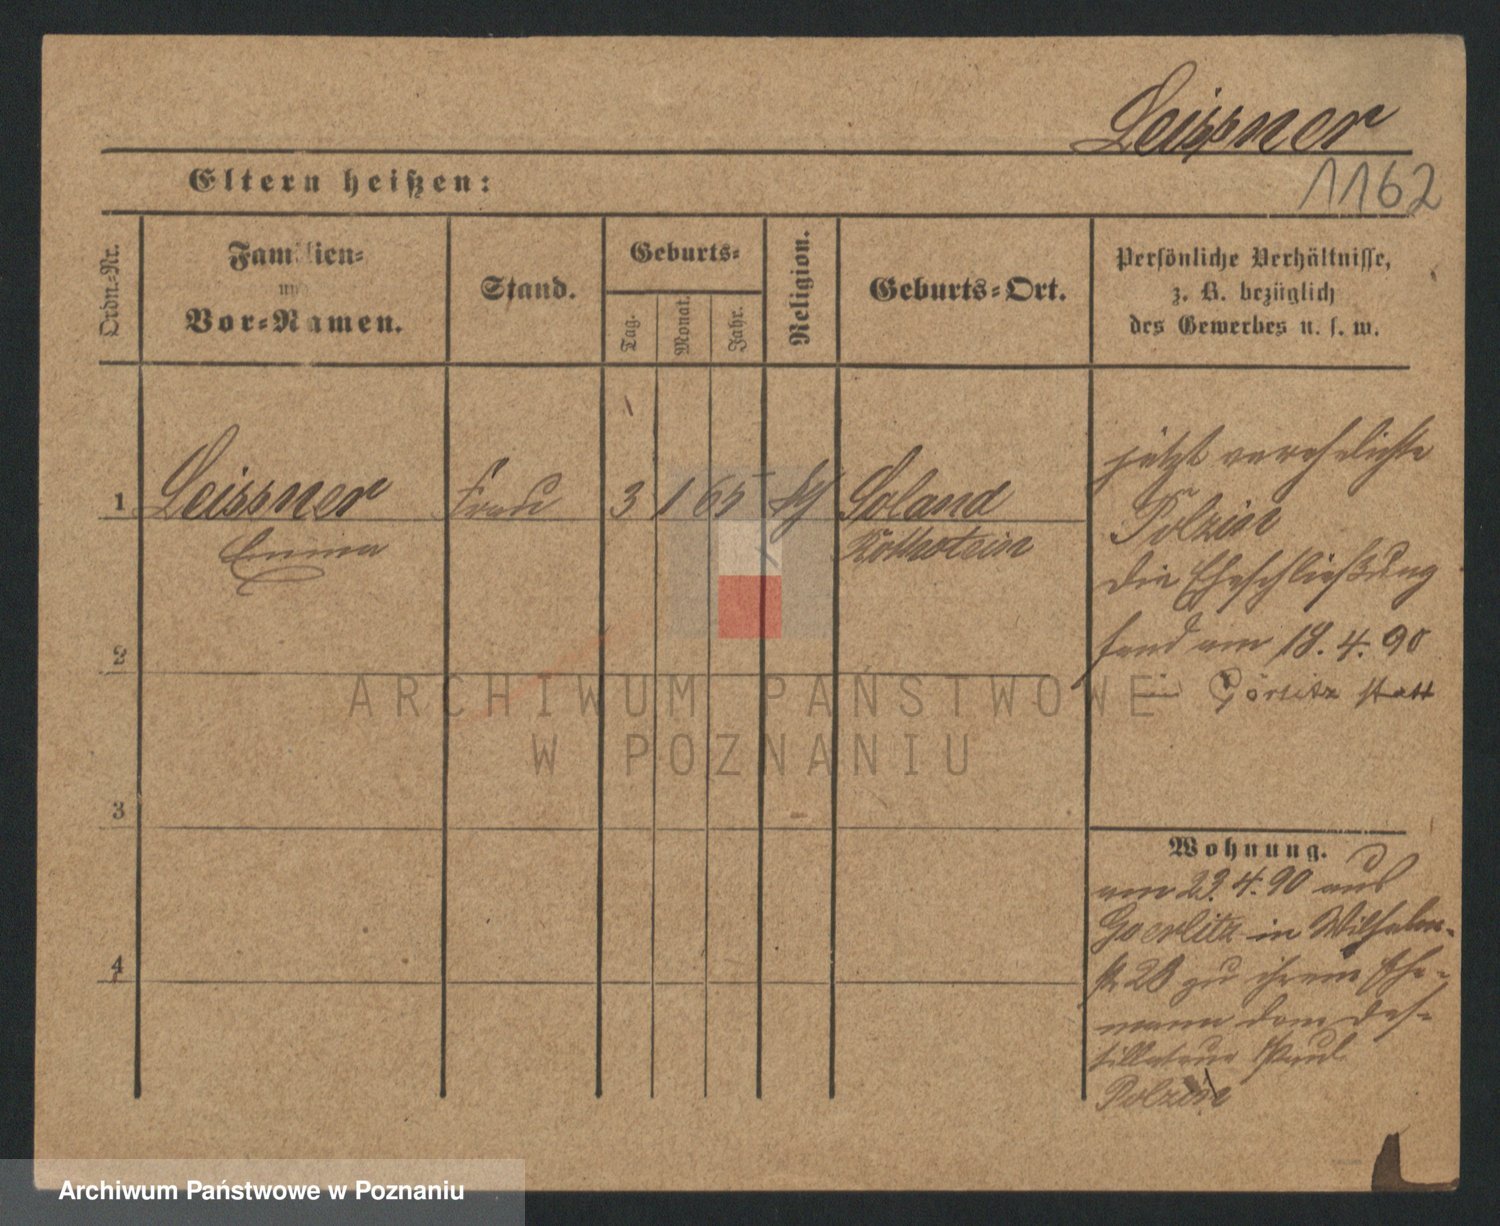 Leissner
1162
Eltern heißen:
Ordn.-Nr.
Familien-
und
Vor-Namen.
Stand.
Geburts-
Tag.
Monat.
Jahr.
Religion.
Geburts-Ort.
Persönliche Verhältnisse,
z. B. bezüglich
des Gewerbes u. s. w.
1 Leissner Frau 3 1 65 Soland
Emma Rothstein
2
3
4
jetzt verehelichte
Polzin
die Eheschließung
fand am 18.4.90
in Görlitz statt
Wohnung.
am 23.4.90 aus
Goerlitz in Wilhelm-
str 28 zu ihrem Ehe-
mann dem Des-
tillateur Paul
Polzin
ARCHIWUM PAŃSTWOWE
W POZNANIU
Archiwum Państwowe w Poznaniu